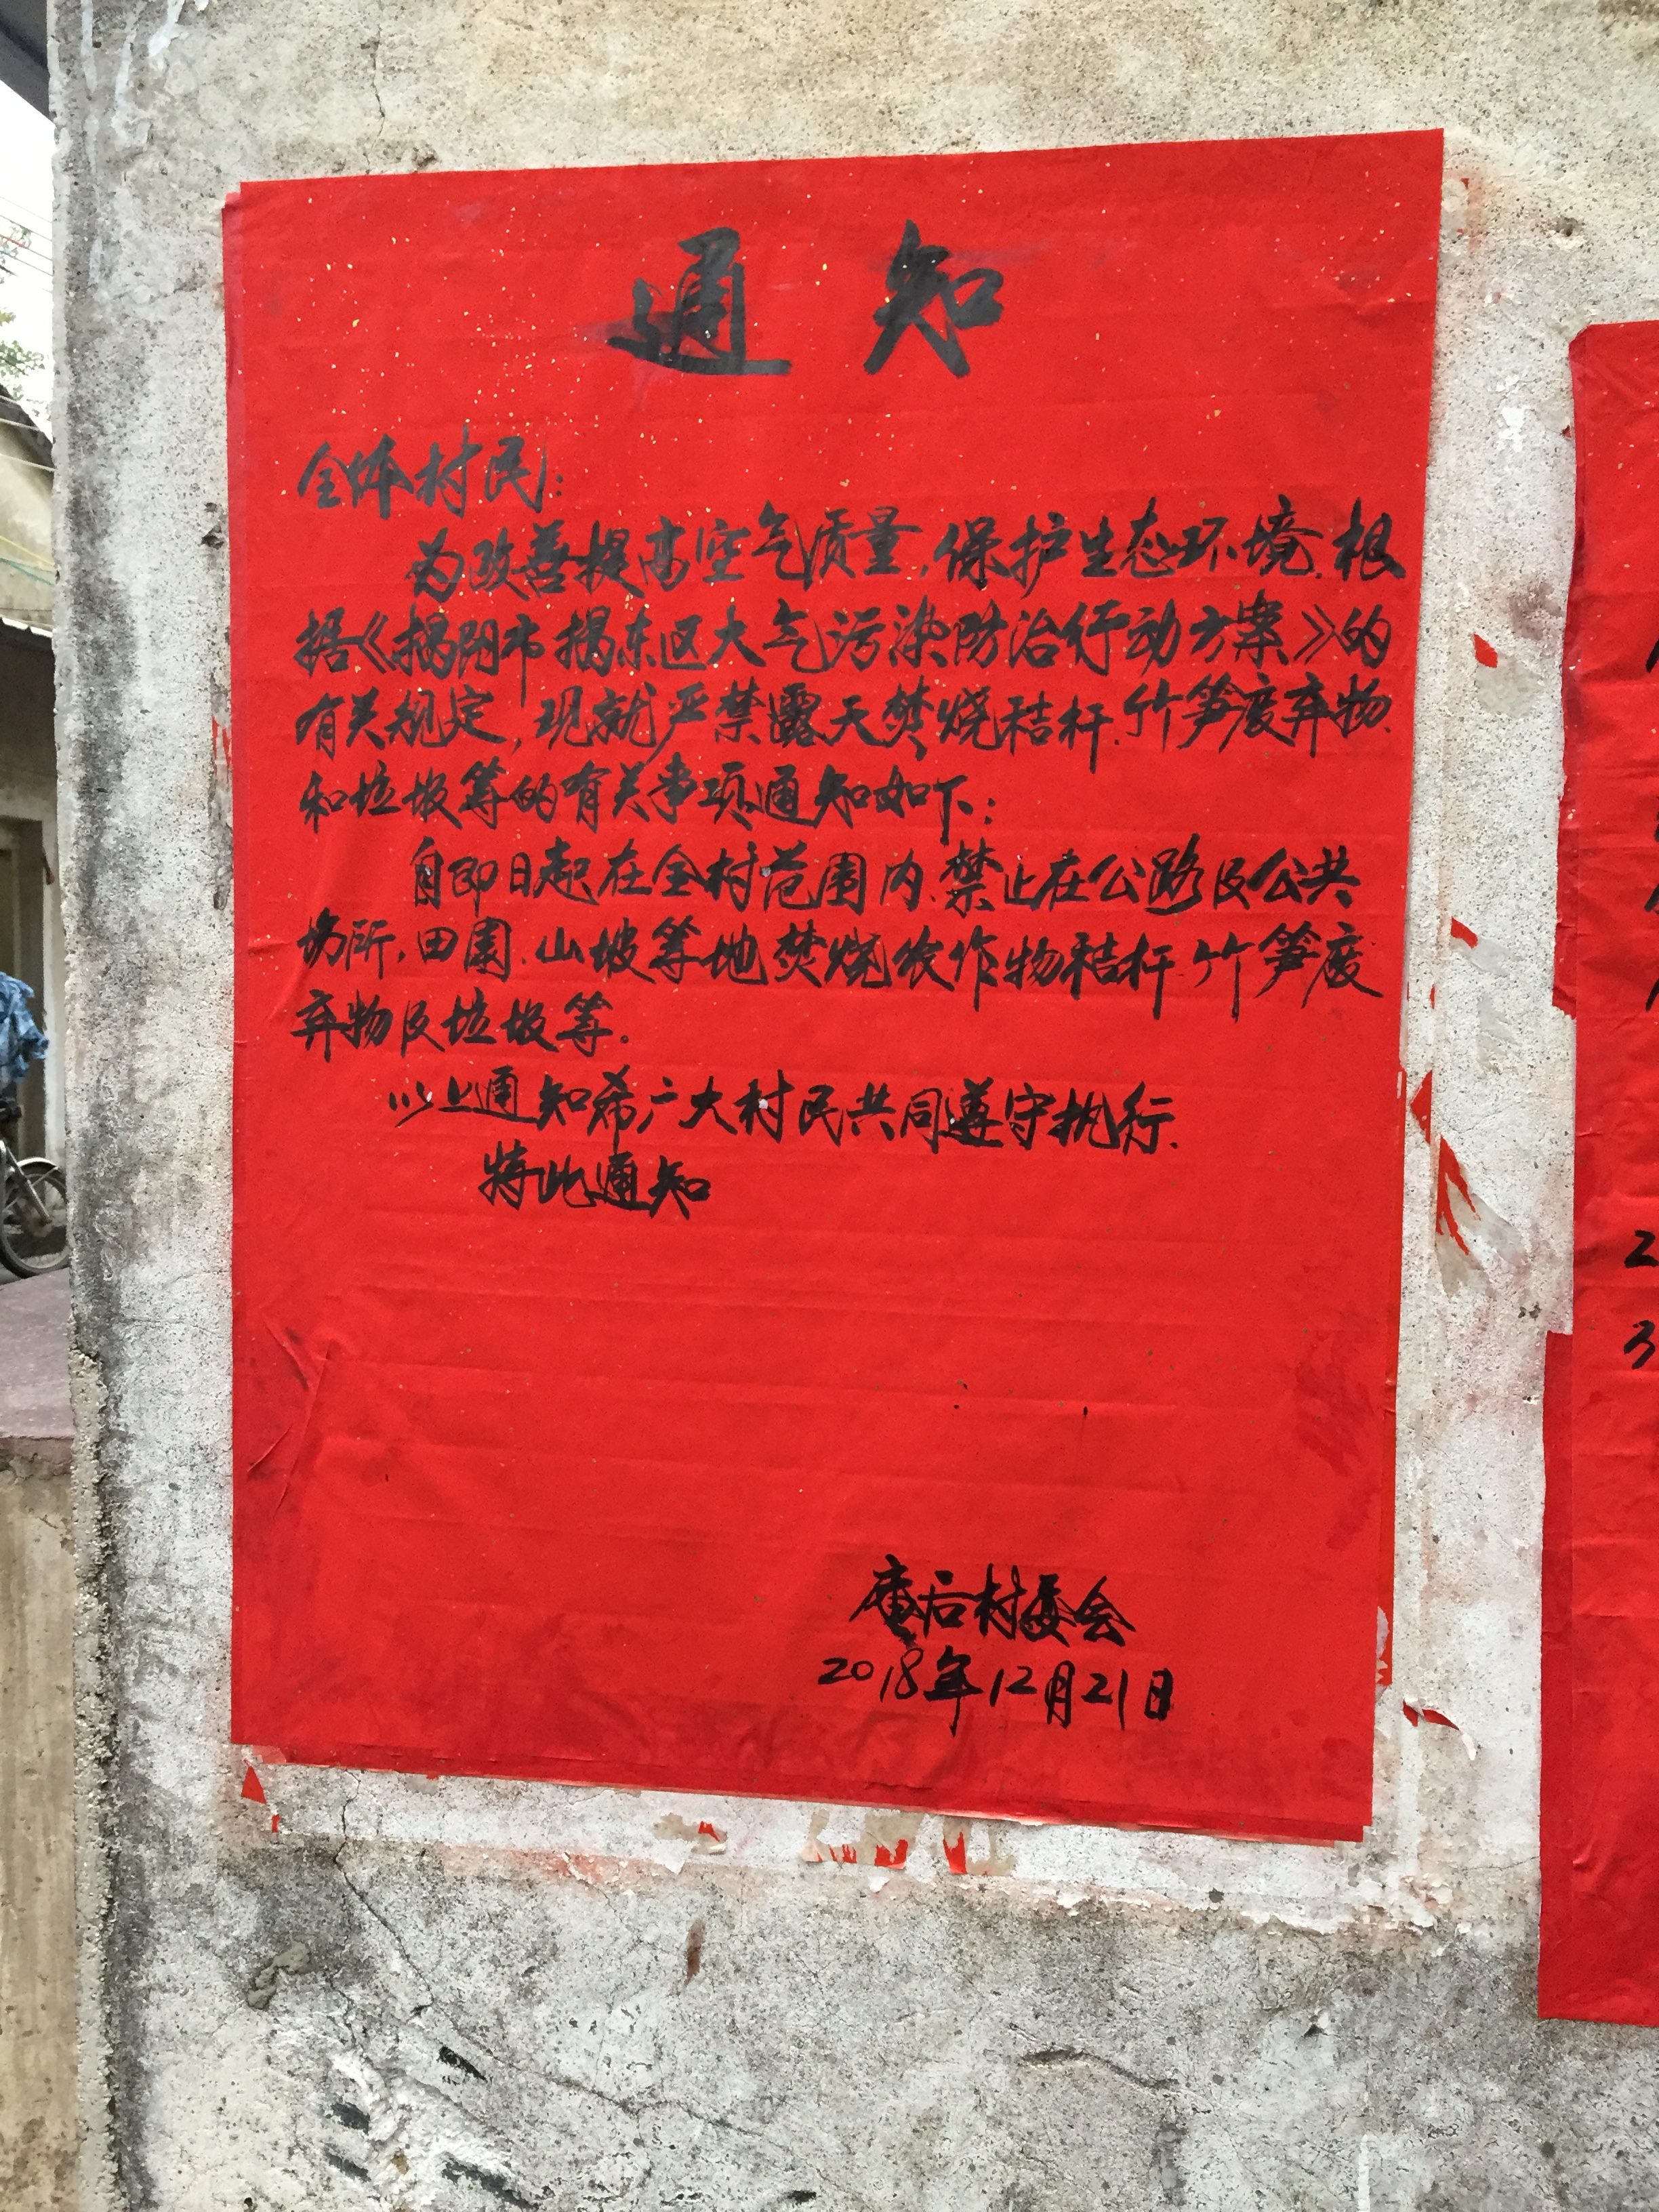 通知
全体村民：
为改善提高空气质量,保护生态环境,根
据《揭阳市揭东区大气污染防治行动方案》的
有关规定,现就严禁露天焚烧秸杆、竹笋废弃物
和垃圾等的有关事项通知如下：
自即日起在全村范围内、禁止在公路及公共
场所,田园、山坡等地焚烧农作物秸杆、竹笋废
弃物及垃圾等.
以上通知希广大村民共同遵守执行.
特此通知
庵后村委会
2018年12月21日
2
3